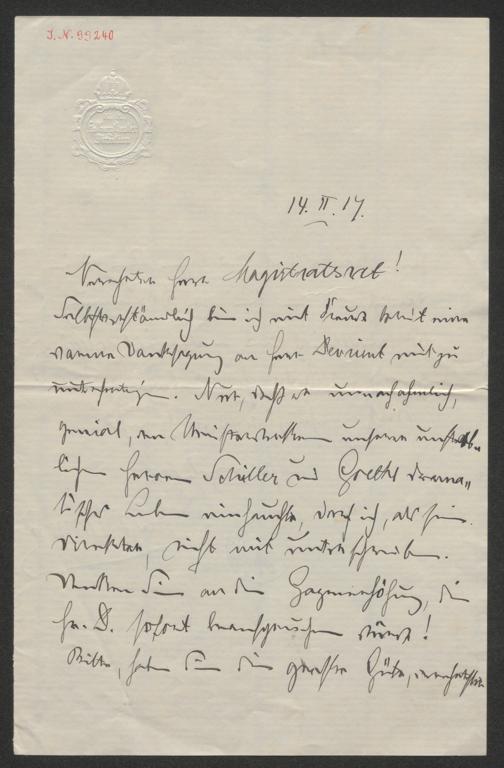 J. N. 99240
14. II. 17.
Verehrter Herr Magistratsrat!
Selbstverständlich bin ich mit Freude bereit eine
warme Danksagung an Herrn Devrient mit zu
unterfertigen. Nur, daß er unnachahmlich,
genial, den Meisterwerken unserer unsterb-
lichen Heroen Schiller und Goethe drama-
tisches Leben einhauchte, darf ich, als sein
Direktor, nicht mit unterschreiben.
Denken Sie an die Gagenerhöhung, die
Hr. D. sofort beanspruchen würde!
Bitte, haben Sie die große Güte, verehrtester